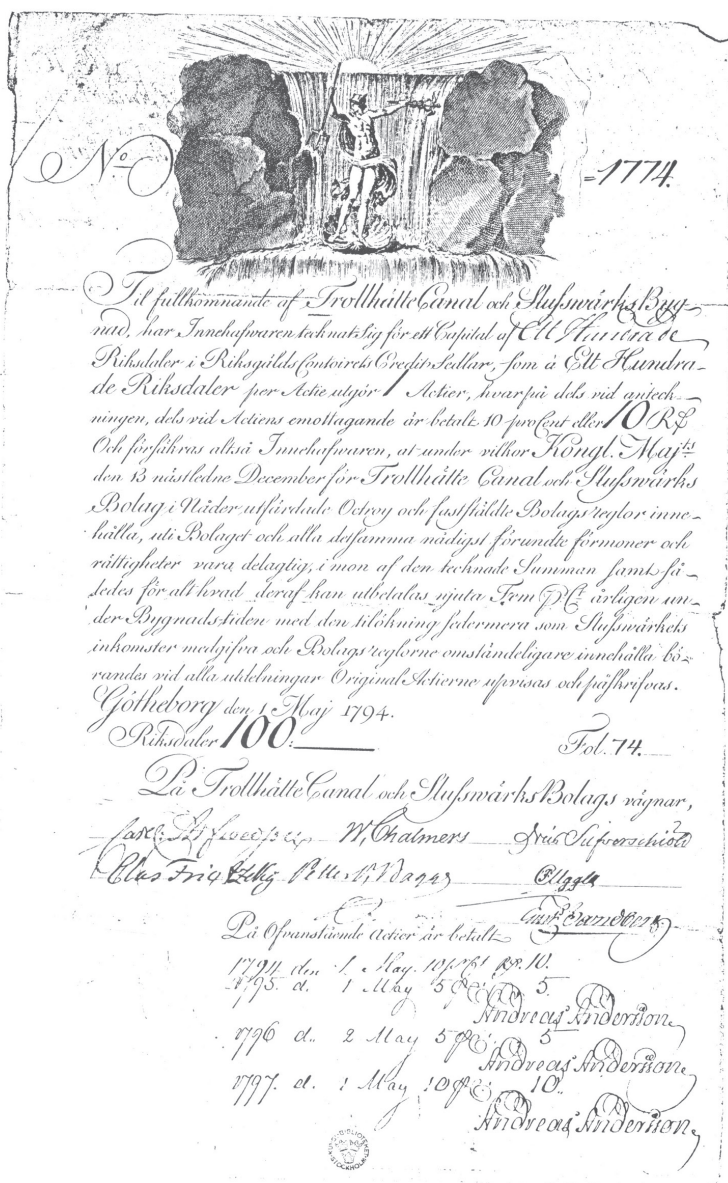 No = 1774.
Til fullkomnande af Trollhätte Canal och SlusswärksByg-
nad, har Innehafwaren tecknat Sig för ett Capital af Ett Hundrade
Riksdaler i RiksgäldsContoirets CreditSedlar, som à Ett Hundra-
de Riksdaler per Actie utgör 1 Actier, hvarpå dels vid anteck-
ningen, dels vid Actiens emottagande är betalt 10 proCent eller 10 Rd
Och försäkras altså Innehafwaren, at under vilkor Kongl. Majts
den 13 nästledne December för Trollhätte Canal och Slusswärks
Bolag i Nåder utfärdade Octroy och fastställdte Bolagsreglor inne-
hålla, uti Bolaget och alla detsamma nådigst förundte förmoner och
rättigheter vara delagtig, i mon af den tecknade Summan samt så-
ledes för alt hvad deraf kan utbetalas njuta Fem pCt årligen un-
der Bygnads-tiden med den tilökning sedermera som Slusswärkets
inkomster medgifva och Bolagsreglorne omständeligare innehålla bö-
randes vid alla utdelningar OriginalActierne upvisas och påskrifvas.
Götheborg den 1 Maj 1794.
Riksdaler 100: Fol. 74.
På Trollhätte Canal och SlusswärksBolags vägnar,
W, Chalmers Silfverschiöld
Clas Petter P. Bagge
På Ofvanstående Actier är betalt
1794 den 1. May. 10 pCt 10.
1795. d. 1 May 5 pCt 5.
Andreas Andersson
1796 d.. 2 May 5 pCt 5
Andreas Andersson
1797. d. 1 May 10 pCt 10..
Andreas Andersson
STOCKHOLM